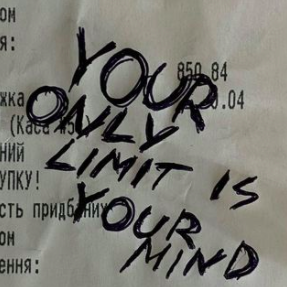 ом
я:
850.84
жка 0.04
(Каса
ний
УПКУ!
сть придбаних
ом
ення:
YOUR
ONLY
LIMIT IS
YOUR
MIND